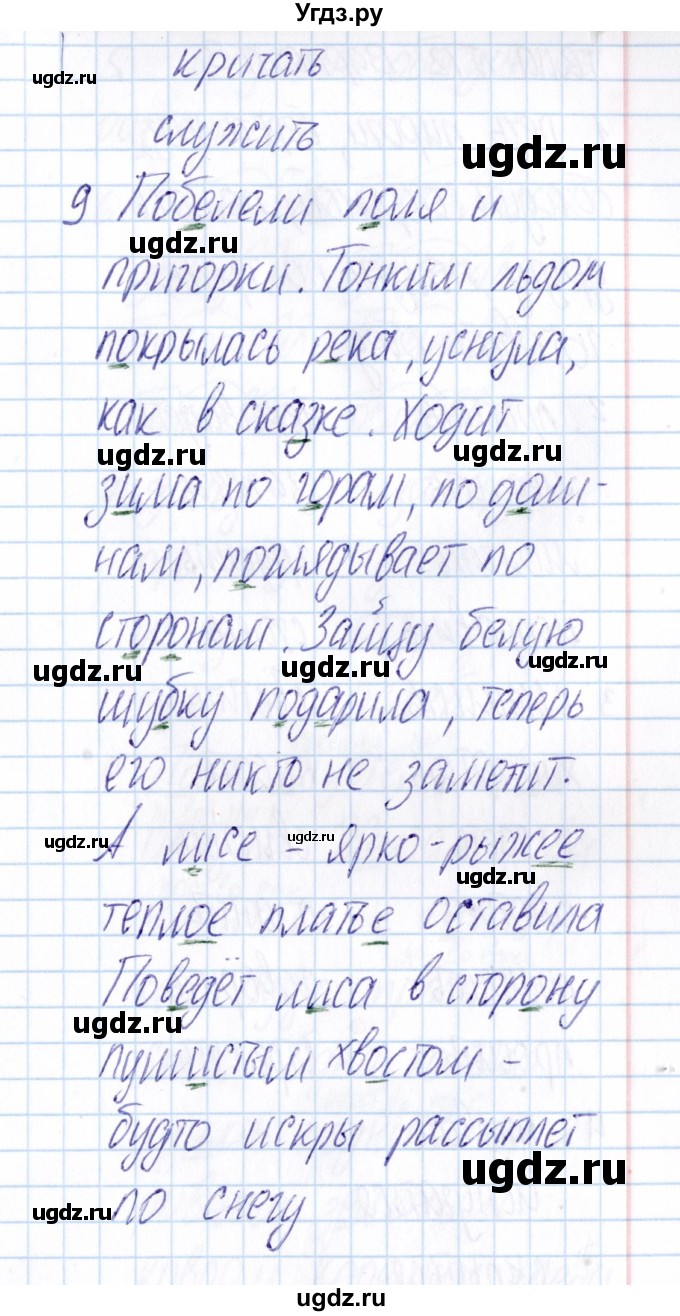 Угдз.ру
кричать
ugdz.ru
служить
ugdz.ru
9 Побелели поля и
ugdz.ru
пригорки. Тонким льдом
покрылась река, уснула,
как в сказке. Ходит
ugdz.ru ugdz.ru
зима по горам, по доли-
нам, поглядывает по
сторонам. Зайцу белую
ugdz.ru ugdz.ru ugdz.ru
шубку подарила, теперь
его никто не заметит.
ugdz.ru ugdz.ru
А лисе – ярко-рыжее
ugdz.ru
теплое платье оставила
Поведёт лиса в сторону
ugdz.ru
пушистым хвостом –
будто искры рассыплет
ugdz.ru
по снегу
ugdz.ru
ugdz.ru